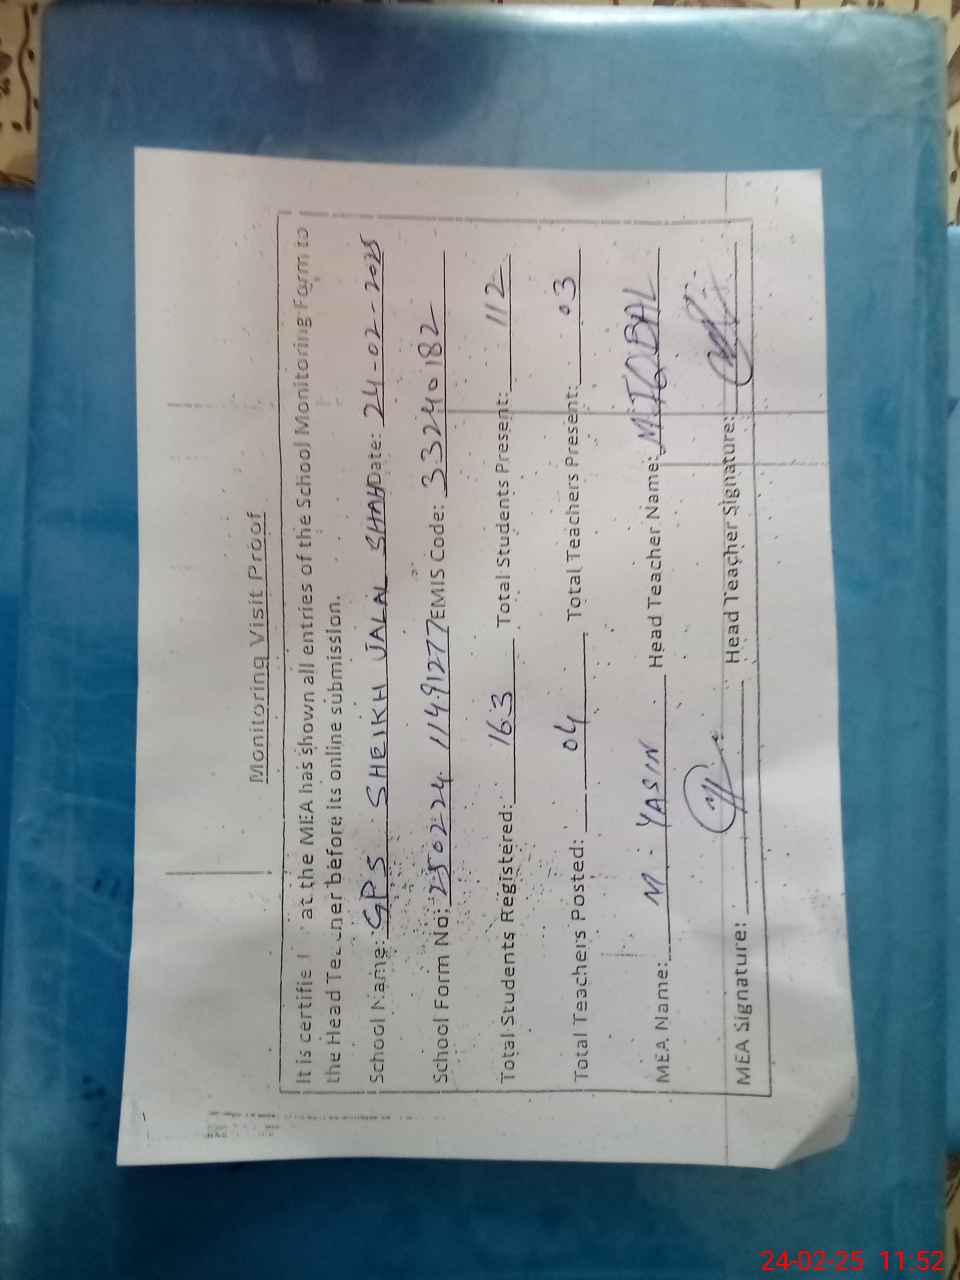 Monitoring Visit Proof
It is certifie at the MEA has shown all entries of the School Monitoring Form to
the Head Te ner before its online submission.
School Name: GPS SHEIKH JALAL SHAH Date: 24-02-2025
School Form No: 250224 11491277 EMIS Code: 33240182
Total Students Registered: 163 Total Students Present: 112
Total Teachers Posted: 04 Total Teachers Present: 03
MEA Name: M. YASIN Head Teacher Name: M.IQBAL
MEA Signature: Head Teacher Signature:
24-02-25 11:52